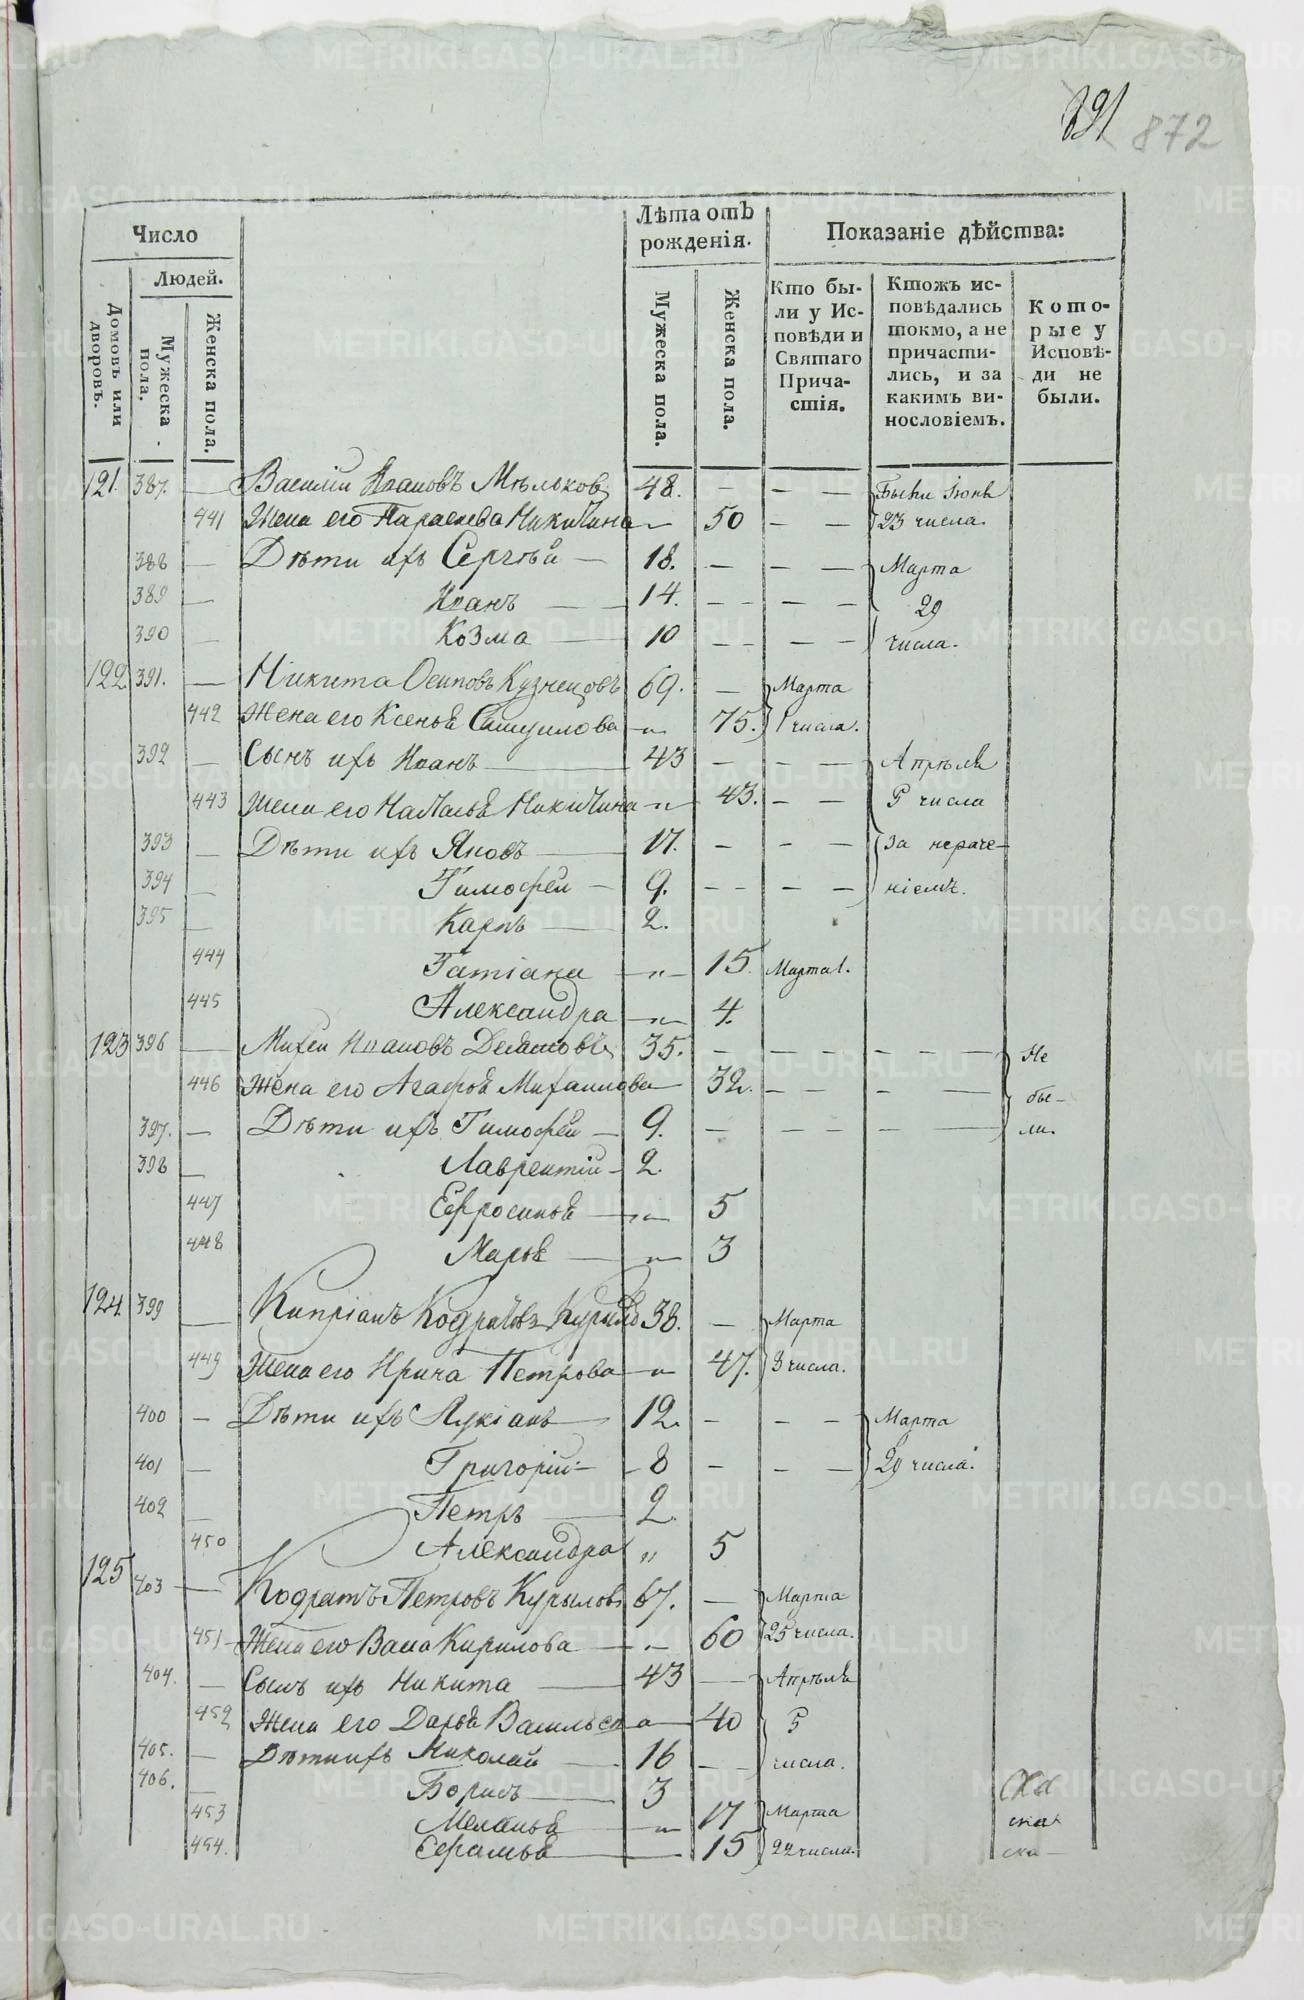 891 872
Число
Людей.
Домовъ или дворовъ.
Мужеска пола.
Женска пола.
Лѣта отъ рожденія.
Мужеска пола.
Женска пола.
Показаніе дѣйства:
Кто бы-
ли у Ис-
повѣди и
Святаго
Прича-
стія.
Ктожъ ис-
повѣдались
токмо, а не
причасти-
лись, и за
какимъ ви-
нословіемъ.
Кото-
рые у
Исповѣ-
ди не
были.
121. 387. Василіи Ивановъ Мѣльковъ 48. — — — Были Іюня
441 Жена его Параскева Никитина " 50 — — 23 числа.
388 — Дѣти ихъ Сергѣй — 18. — — — Марта
389 — Иванъ — 14. — — — 29
390 — Козма — 10 — — — числа.
122 391. — Никита Осиповъ Кузнецовъ 69. — Марта
442 Жена его Ксенья Самуилова " 75. 1 числа.
392 — Сынъ ихъ Иванъ — 43 — — — Апрѣля
443 Жена его Наталья Никитина " 43. — — 5 числа
393 — Дѣти ихъ Яковъ — 17. — — — за нераче-
394 — Тимофеи — 9. — — — ніемъ.
395 — Карпъ — 2.
444 Татіана — " — 15. Марта 1.
445 Александра — " — 4.
123 396 — Михеи Ивановъ 35. — — — — — Не
446 Жена его Агафья Михаилова — 32. — — — — бы-
397. — Дѣти ихъ Тимофеи — 9. — — — — — ли.
398 — Лаврентіи — 2.
447 Евфросинья — " — 5
448 Марья — " — 3
124. 399 — Кипріанъ Кодратовъ 38. — Марта
449 Жена его Ирина Петрова — " 47. 3 числа.
400 — Дѣти ихъ Лукіанъ — 12. — — — Марта
401 — Григоріи — 8 — — — 29 числа.
402 — Петръ — 2.
450 Александра " 5
125 403 — Кодратъ Петровъ Курыловъ 67. — Марта
451 — Жена его Васа Кирилова — " 60 25 числа.
404. — Сынъ ихъ Никита — 43 — Апрѣля
452 Жена его Дарья Васильева — 40 5
405. — Дѣти ихъ Николай — 16 — — числа.
406. — Борисъ — 3
453 Меланья — " 17 Марта
454. — 15 22 числа.
METRIKI.GASO-URAL.RU